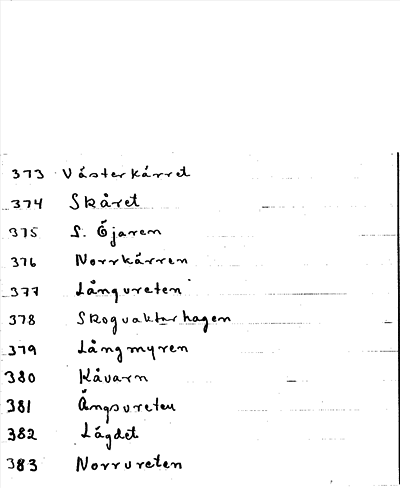 373 Västerkärret
374 Skåret
375 L. Öjaren
376 Norrkärren
377 Långvreten
378 Skogvaktarhagen
379 Långmyren
380 Kåvarn
381 Ängsvreten
382 Lägdet
383 Norrvreten